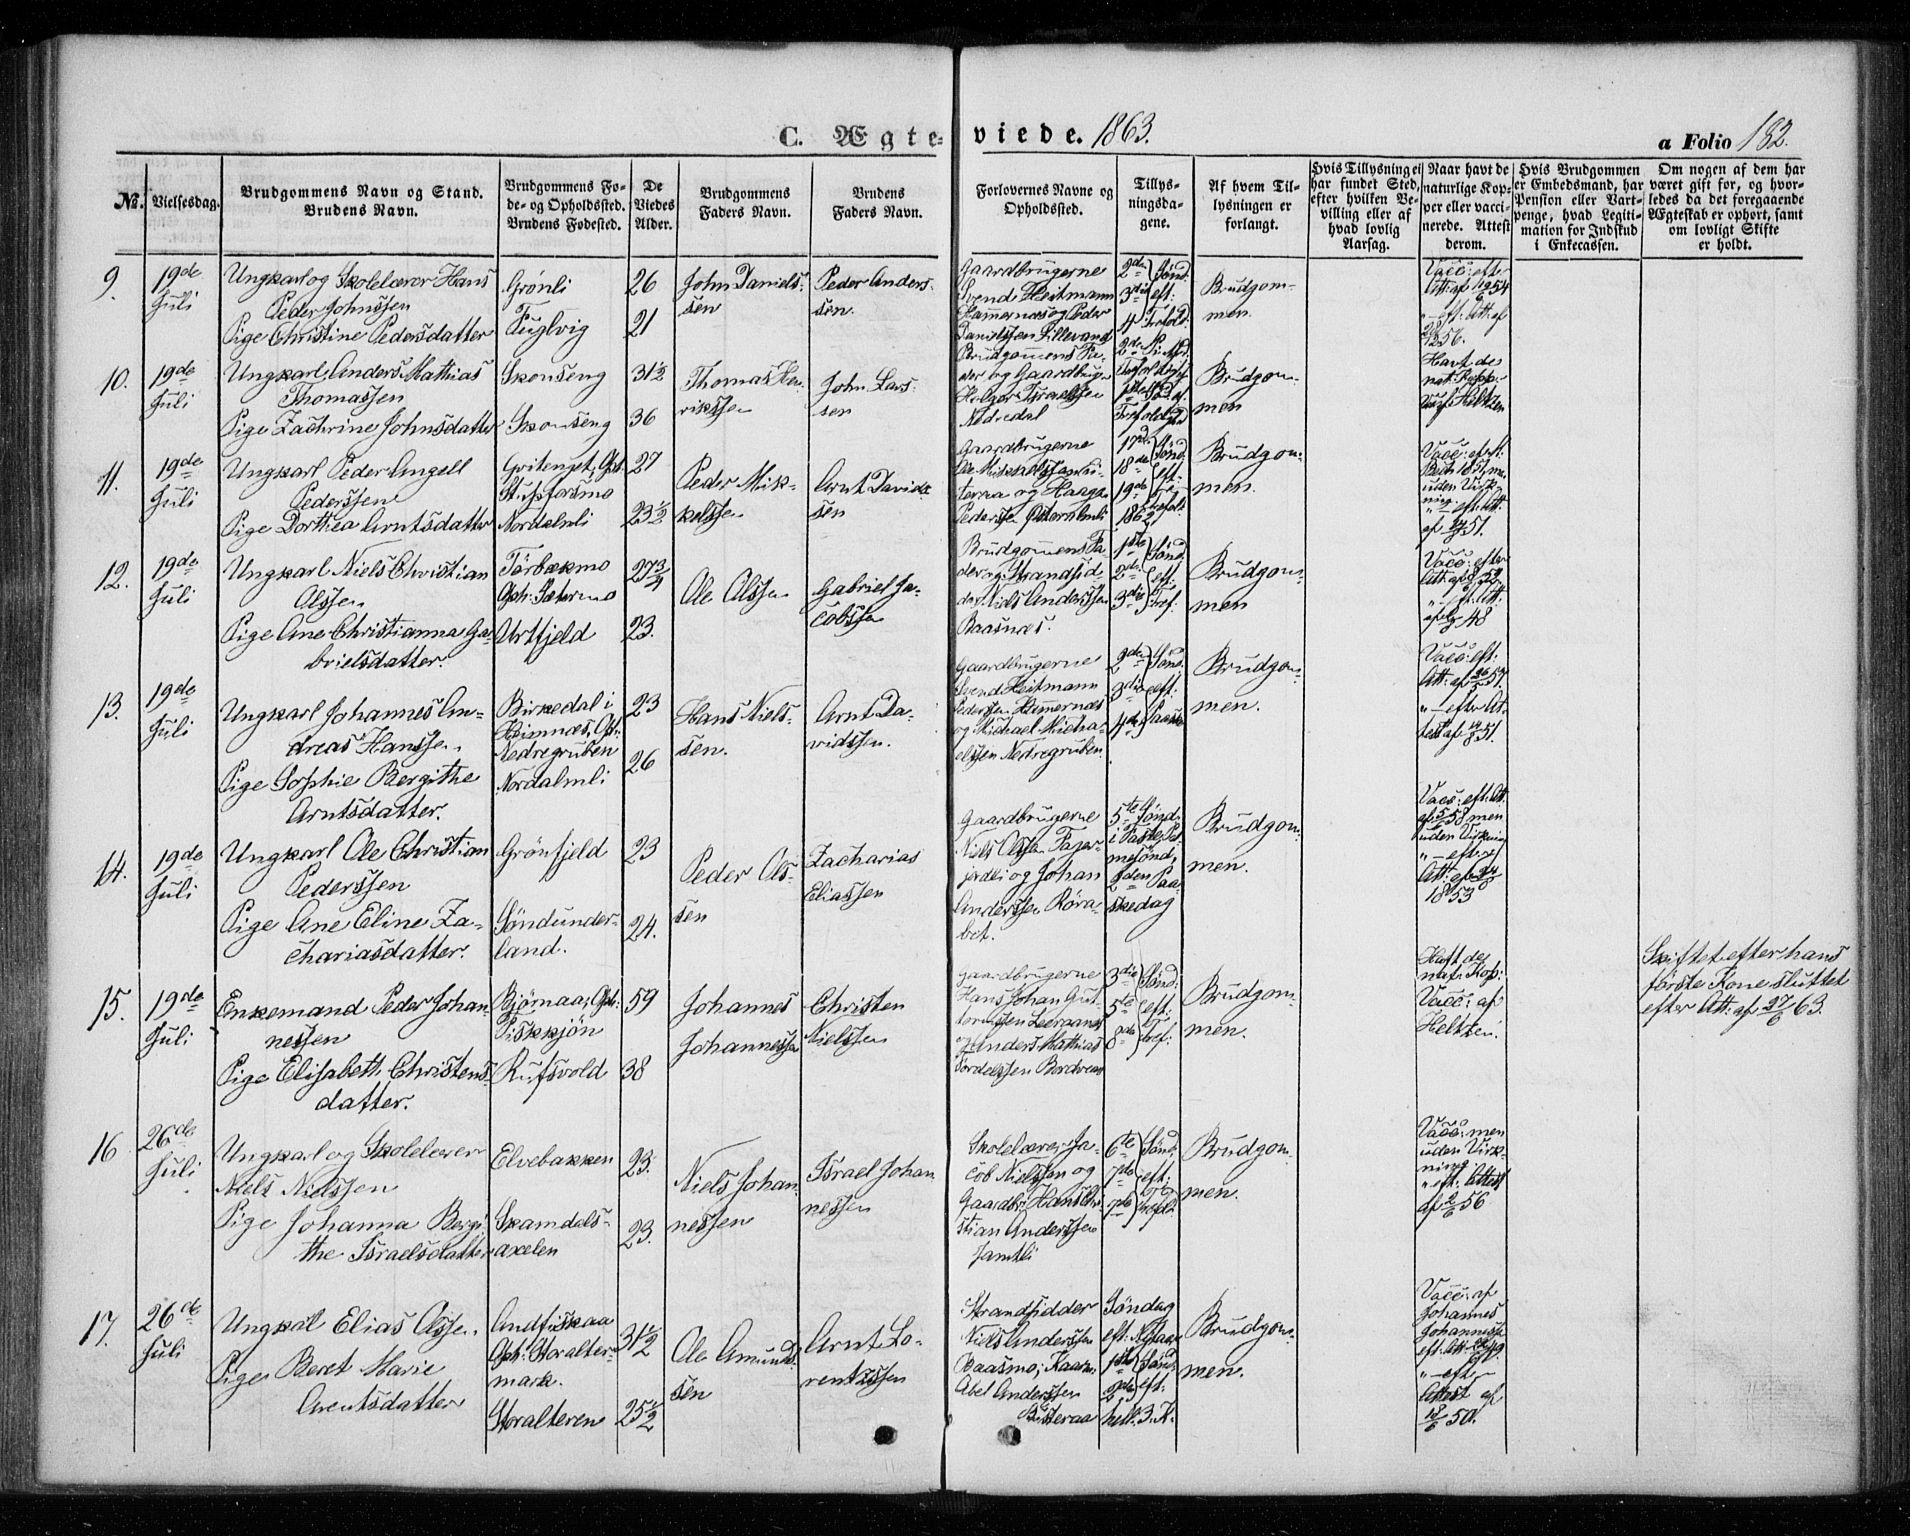 C. Ægteviede. 1863.
a Folio 182.
No.
Vielsesdag.
Brudgommens Navn og Stand.
Brudens Navn.
Brudgommens Fo-
de- og Opholdssted.
Brudens Fødested.
De
Viedes
Alder.
Brudgommens
Faders Navn.
Brudens
Faders Navn.
Forlovernes Navne og
Opholdssted.
Tillys-
ningsda-
gene.
Af hvem Til-
lysningen er
forlangt.
Hvis Tillysning ei
har fundet Sted,
efter hvilken Be-
villing eller af
hvad lovlig
Aarsag.
Naar havt de
naturlige Kop-
per eller vacci-
nerede. Attest
derom.
Hvis Brudgommen
er Embedsmand, har
Pension eller Vart-
penge, hvad Legiti-
mation for Indskud
i Enkecassen.
Om nogen af dem har
været gift før, og hvor-
ledes da det foregaaende
Ægteskab er ophørt, samt
om lovligt Skifte
er holdt.
9.
19de
Juli
Ungkarl og Skolelærer Hans
Peder Johnssen
Pige Christine Pedersdatter
Grönli
Fuglvig
26
21
John Daniels-
sen
Peder Anders-
sen.
Gaardbrugerne
Svend Heitmann
Hamernæs og Peder
Danielssen Lillevand
2den Sönd.
3die eft:
4 Trefold.
Brudgom-
men
Vacc: eft
10.
19de
Juli
Ungkarl Anders Mathias
Thomassen
Pige Zachrine Johnsdatter
Skonseng
Skonseng
31½
36
Thomas Hen-
rikssen
John Lars-
sen
Brudgommens Fa-
der og Gaardbrug.
Holger Israelssen
Nedredal
Brudgom-
men
Havt de
nat: Kopp:
11.
19de
Juli
Ungkarl Peder Angell
Pederssen
Pige Dorthea Arntsdatter
Stupforsmo
Nordalmli
27
23½
Peder Mik-
kelssen
Arnt Davids
sen
Gaardbrugerne
17de Sönd.
18de eft.
19de
1862
Brudgom-
men.
uden Virk-
ning.
12.
19de
Juli
Ungkarl Niels Christian
Olssen
Pige Ane Christianna Ga-
brielsdatter.
Törbækmo
Oph: Sætermo
Urtfjeld
27¾
23.
Ole Olssen
Gabriel Ja-
cobssen
Brudgommens Fa-
der og Strandsid-
der Niels Anderssen
Baasnæs.
1ste Sönd
2den eft:
3die Tref.
Brudgom-
men
Vacc: efter
13.
19de
Juli
Ungkarl Johannes An-
dreas Hanssen.
Pige Sophie Bergithe
Arntsdatter.
Birkedal i
Heimnæs, Oph:
Nedregruben
Nordalmli
23
26
Hans Niels-
sen.
Arnt Da-
vidssen.
Gaardbrugerne
Svend Heitmann
Pederssen Hamernæs
og Michael Micha-
elssen Nedregruben
2den Sönd.
3die eft:
4de Paaske
Brudgom-
men.
Vacc: eft:
14.
19de
Juli
Ungkarl Ole Christian
Pederssen
Pige Ane Eline Za-
chariasdatter.
Grönfjeld
Söndunder-
land.
23
24.
Peder Ols-
sen
Zacharias
Eliassen
Gaardbrugerne
og Johan
Anderssen Röra-
bet.
5te Sönd.
i Faste, Pal
mesönd,
2den Paa-
skedag
Brudgom
men.
Vacc: eft: Att.
uden Virkning
1853
15.
19de
Juli
Enkemand Peder Johan-
nessen
Pige Elisabeth Christens-
datter.
Bjørnaa, Oph:
Piskkjön
Rufsvold
59
38
Johannes
Johannessen
Christen
Nielssen
gaardbrugerne
og Anders Mathias
3die Sönd:
5te eft:
8de Tref:
Brudgom-
men.
Haft de
nat: Kop:
Vacc: af
Heltzen.
Skiftet efter hans
første Kone sluttet
efter Att: af 27/6 63.
16
26de
Juli
Ungkarl og Skolelærer
Niels Nielssen
Pige Johanna Bergi
the Israelsdatter
Elvebakken
Skamdals-
axelen
23.
23.
Niels Johan-
nessen
Israel Johan
nessen
Skolelærer Ja-
cob Nielssen og
Gaardbr: Hans Chri
stian Anderssen
Jamtli
6te Sönd.
7de eft:
Brudgom-
men.
Vacc: men
uden Virk-
ning
" eft. Attest
af 2/6 56
17.
26de
Juli
Ungkal Elias Olssen.
Pige Beret Marie
Arentsdatter
Andfiskaa
Oph: Storalter-
mark.
Storalteren
31½
25½
Ole Amund-
sen
Arnt Lo-
rentzssen
Strandsidder
Niels Anderssen
Baasmo,
Abel Anderssen
Söndag
eft: Nytaar
1ste Sönd
2den eft:
hell. 3. K.
Brudgom-
men.
Vacc: af
Johannes
Johannessen
" - eft
Attest af
18/6 50.